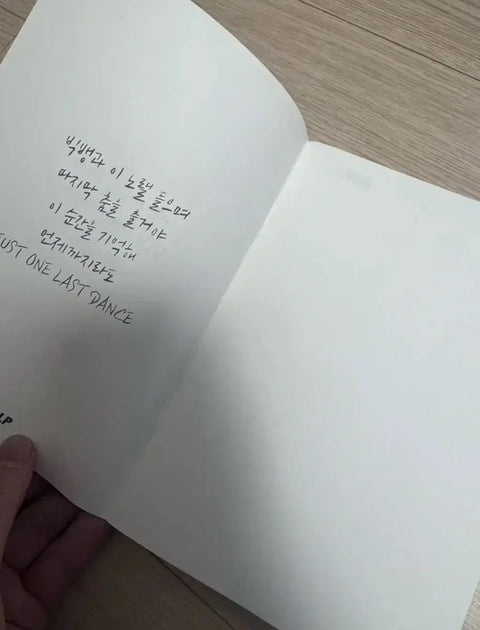 빅뱅과 이 노랠 들으며
마지막 춤을 출거야
이 순간을 기억해
언제까지라도
JUST ONE LAST DANCE
.P